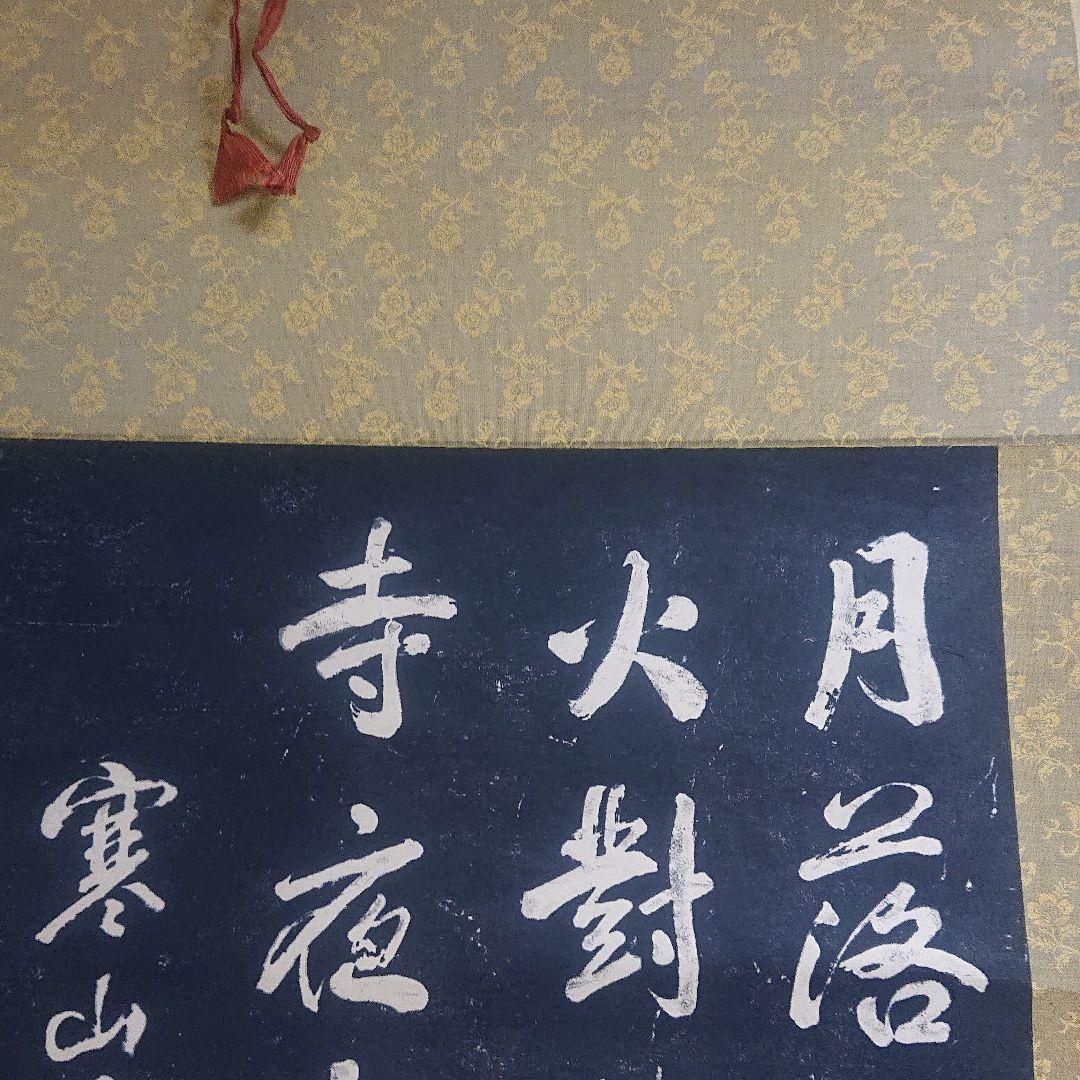 月落
火對
寺夜
寒山